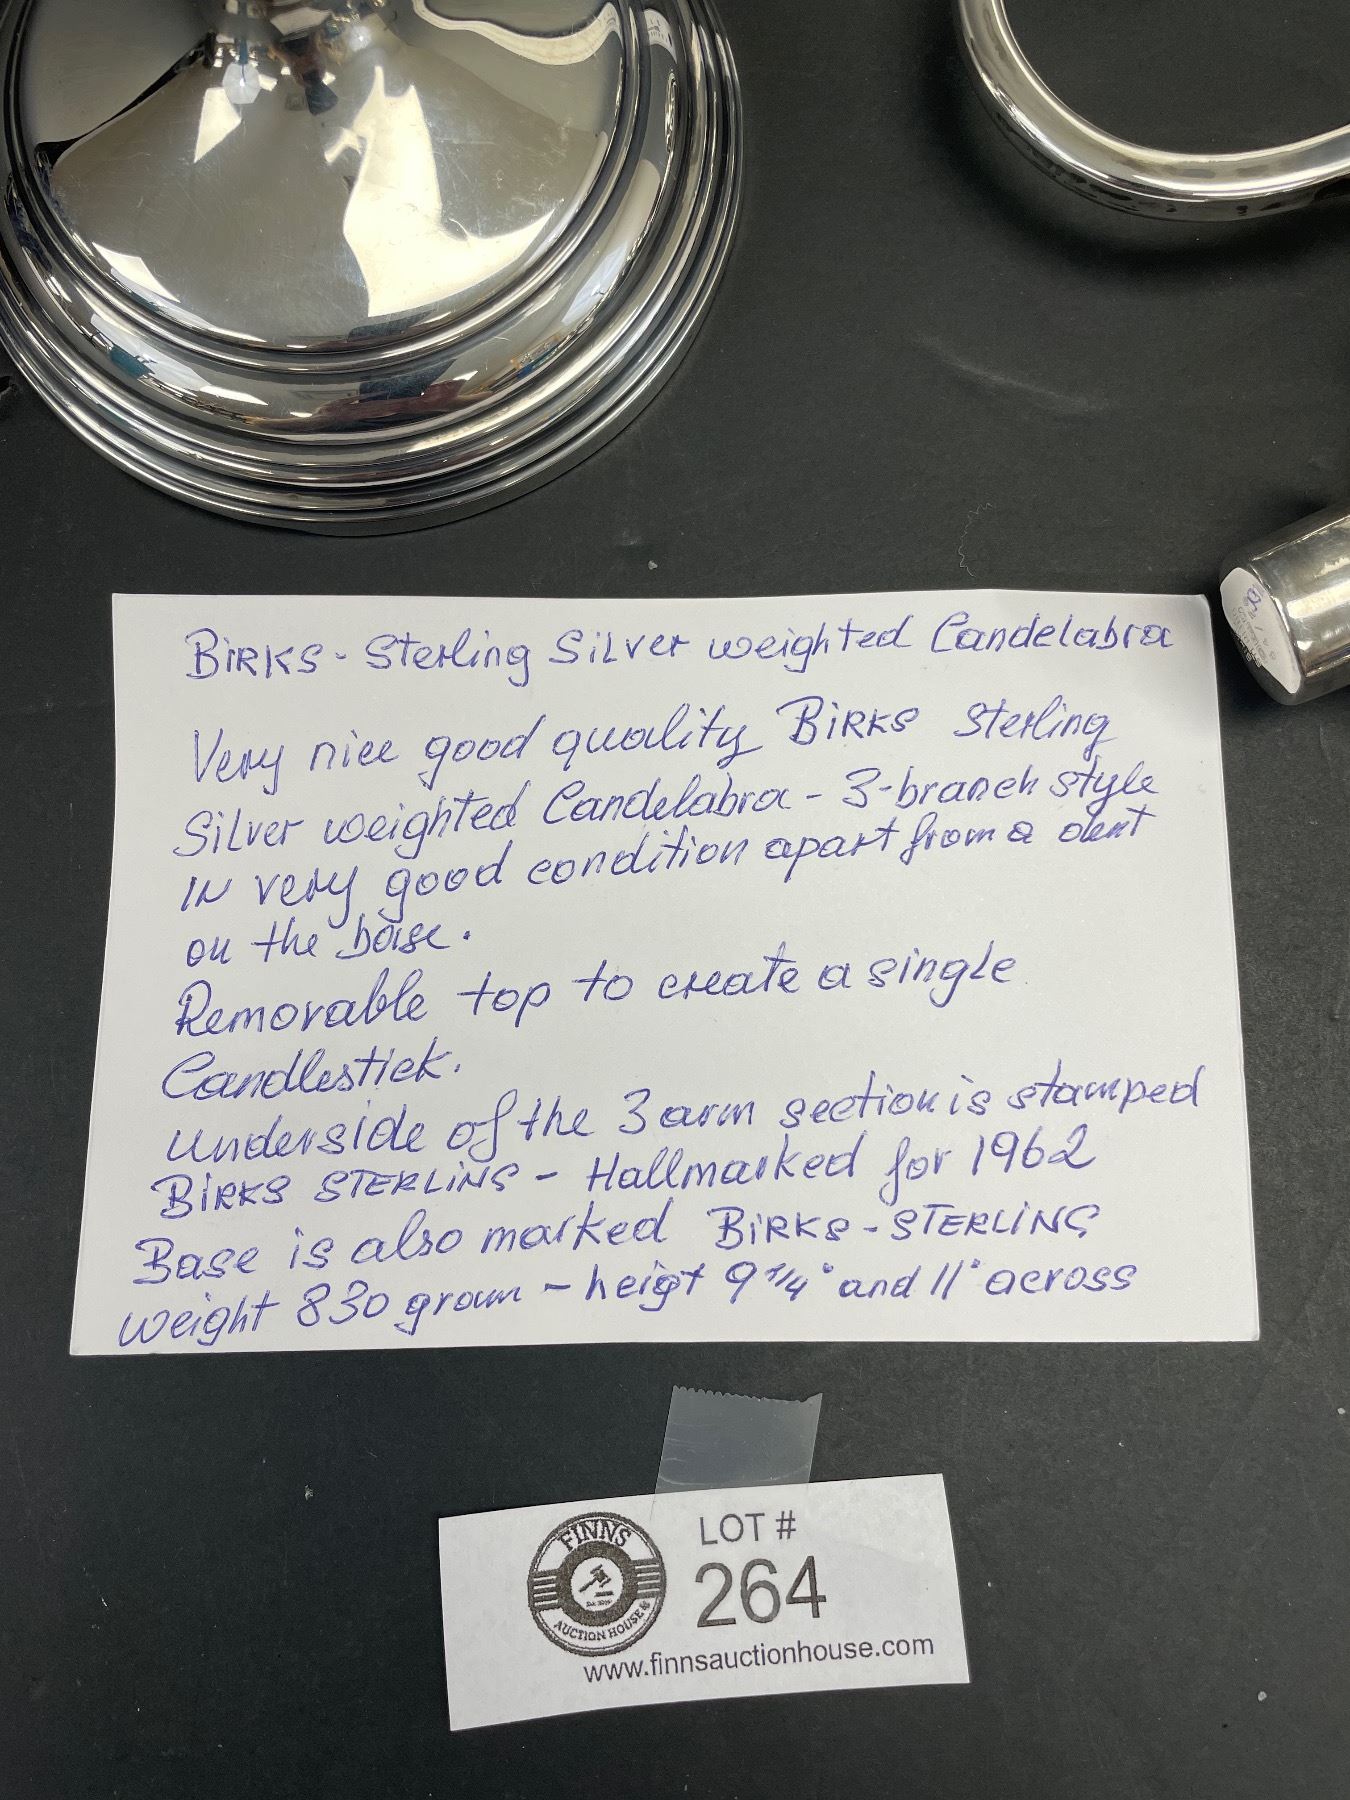 BIRKS - Sterling Silver weighted Candelabra
Very nice good quality BIRKS Sterling
Silver weighted Candelabra - 3-branch style
IN very good condition apart from a dent
on the base.
Removable top to create a single
Candlestick.
underside of the 3 arm section is stamped
BIRKS STERLING - Hallmarked for 1962
Base is also marked BIRKS - STERLING
weight 830 gram - heigt 9 1/4" and 11" across
FINNS
AUCTION HOUSE
LOT #
264
www.finnsauctionhouse.com